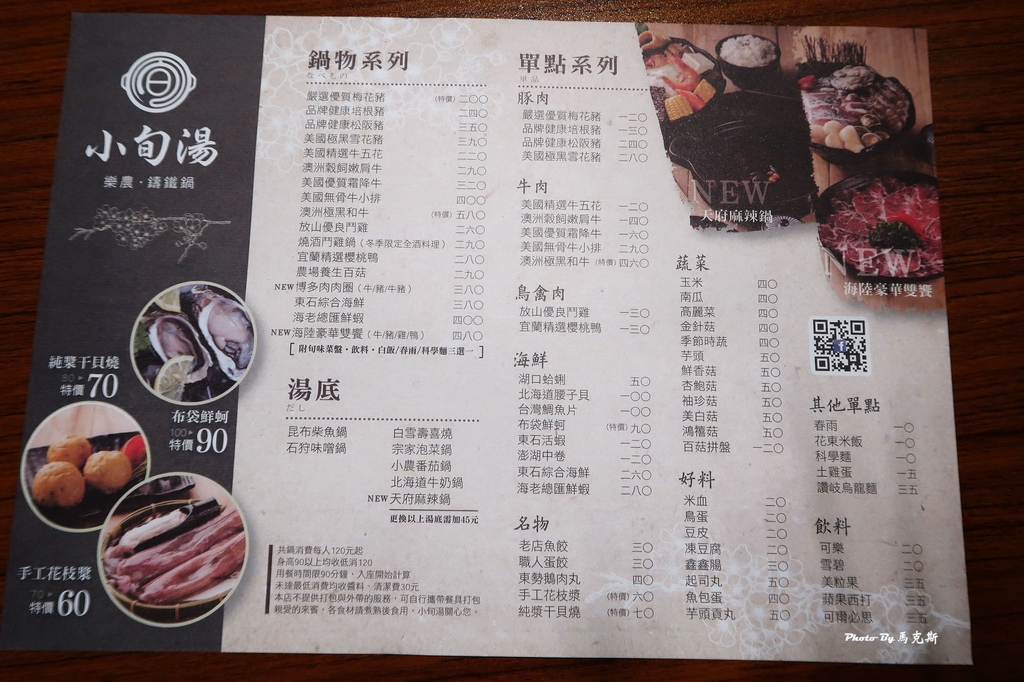 小旬湯
樂農·鑄鐵鍋
純漿干貝燒
80 ▸ 特價70
布袋鮮蚵
100 ▸ 特價90
手工花枝漿
70 ▸ 特價60
鍋物系列
なべもの
嚴選優質梅花豬 (特價) 二〇〇
品牌健康培根豬 二四〇
品牌健康松阪豬 三五〇
美國極黑雪花豬 三九〇
美國精選牛五花 二二〇
澳洲穀飼嫩肩牛 二九〇
美國優質霜降牛 三二〇
美國無骨牛小排 四〇〇
澳洲極黑和牛 (特價) 五八〇
放山優良鬥雞 二六〇
燒酒鬥雞鍋(冬季限定全酒料理) 二九〇
宜蘭精選櫻桃鴨 二八〇
農場養生百菇 二九〇
NEW 博多肉肉圈(牛/豬/牛豬) 三八〇
東石綜合海鮮 三八〇
海老總匯鮮蝦 四〇〇
NEW 海陸豪華雙饗(牛/豬/雞/鴨) 四八〇
[ 附旬味菜盤·飲料·白飯/春雨/科學麵三選一 ]
湯底
だし
昆布柴魚鍋
石狩味噌鍋
白雪壽喜燒
宗家泡菜鍋
小農番茄鍋
北海道牛奶鍋
NEW 天府麻辣鍋
更換以上湯底需加45元
共鍋消費每人120元起
身高90以上均收低消120
用餐時間限90分鐘，入座開始計算
未達最低消費均收醬料、清潔費30元
本店不提供打包與外帶的服務，可自行攜帶餐具打包
親愛的來賓，各食材請煮熟後食用，小旬湯關心您。
單點系列
單品
豚肉
嚴選優質梅花豬 一二〇
品牌健康培根豬 一三〇
品牌健康松阪豬 二四〇
美國極黑雪花豬 二八〇
牛肉
美國精選牛五花 一二〇
澳洲穀飼嫩肩牛 一四〇
美國優質霜降牛 一六〇
美國無骨牛小排 二九〇
澳洲極黑和牛 (特價) 四六〇
鳥禽肉
放山優良鬥雞 一三〇
宜蘭精選櫻桃鴨 一三〇
海鮮
湖口蛤蜊 五〇
北海道腰子貝 一〇〇
台灣鯛魚片 一〇〇
布袋鮮蚵 (特價) 九〇
東石活蝦 一二〇
澎湖中卷 一二〇
東石綜合海鮮 二六〇
海老總匯鮮蝦 二八〇
名物
老店魚餃 三〇
職人蛋餃 三〇
東勢鵝肉丸 四〇
手工花枝漿 (特價) 六〇
純漿干貝燒 (特價) 七〇
NEW
天府麻辣鍋
NEW
海陸豪華雙饗
蔬菜
玉米 四〇
南瓜 四〇
高麗菜 四〇
金針菇 四〇
季節時蔬 四〇
芋頭 五〇
鮮香菇 五〇
杏鮑菇 五〇
袖珍菇 五〇
美白菇 五〇
鴻禧菇 五〇
百菇拼盤 一二〇
好料
米血 二〇
鳥蛋 二〇
豆皮 二〇
凍豆腐 二〇
鑫鑫腸 三〇
起司丸 五〇
魚包蛋 四〇
芋頭貢丸 五〇
其他單點
春雨 一〇
花東米飯 一〇
科學麵 一〇
土雞蛋 一五
讚岐烏龍麵 三五
飲料
可樂 二〇
雪碧 二〇
美粒果 三五
蘋果西打 三五
可爾必思 三五
Photo By 馬克斯